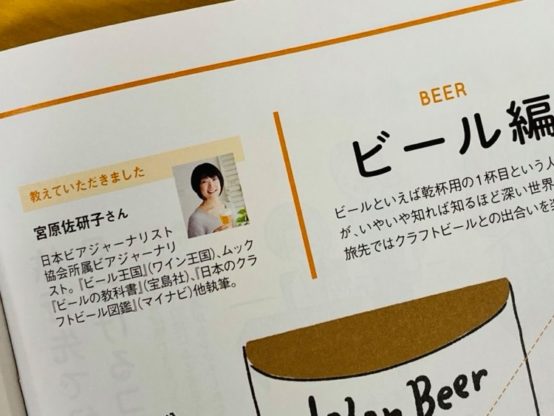 教えていただきました
宮原佐研子さん
日本ビアジャーナリスト
協会所属ビアジャーナリ
スト。『ビール王国』(ワイン王国)、ムック
『ビールの教科書』(宝島社)、『日本のクラ
フトビール図鑑』(マイナビ)他執筆。
BEER
ビール編
ビールといえば乾杯用の1杯目という人
が、いやいや知れば知るほど深い世界
旅先ではクラフトビールとの出合いを楽
Beer